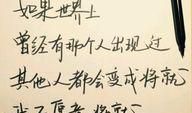 如果世界上
曾经有那个人出现过
其他人都会变成将就
我不愿意将就